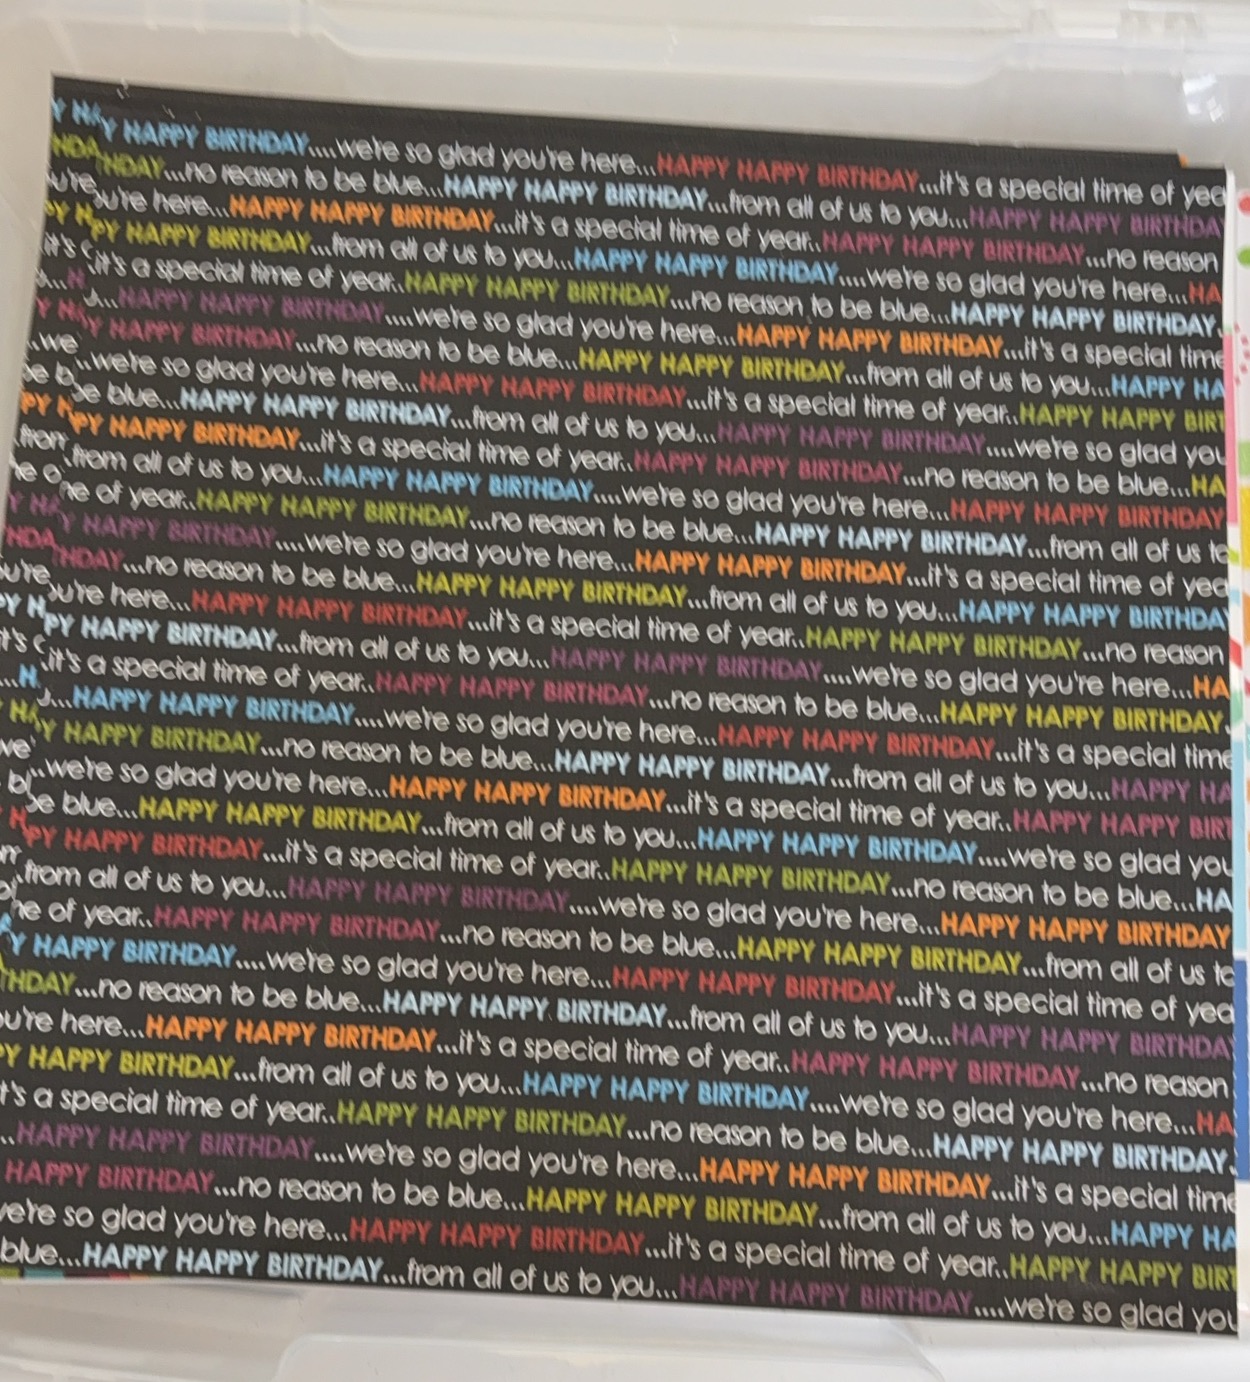 Y HAPPY BIRTHDAY....we're so glad you're here...HAPPY HAPPY BIRTHDAY...it's a special time of yea
HDAY...no reason to be blue...HAPPY HAPPY BIRTHDAY...from all of us to you...HAPPY HAPPY BIRTHDA
ou're here...HAPPY HAPPY BIRTHDAY...it's a special time of year..HAPPY HAPPY BIRTHDAY...no reason
PY HAPPY BIRTHDAY...from all of us to you...HAPPY HAPPY BIRTHDAY....we're so glad you're here...HA
it's a special time of year..HAPPY HAPPY BIRTHDAY...no reason to be blue...HAPPY HAPPY BIRTHDAY.
...HAPPY HAPPY BIRTHDAY....we're so glad you're here...HAPPY HAPPY BIRTHDAY...it's a special time
Y HAPPY BIRTHDAY...no reason to be blue...HAPPY HAPPY BIRTHDAY...from all of us to you...HAPPY HA
..we're so glad you're here...HAPPY HAPPY BIRTHDAY...it's a special time of year..HAPPY HAPPY BIRT
be blue...HAPPY HAPPY BIRTHDAY...from all of us to you...HAPPY HAPPY BIRTHDAY....we're so glad you
PY HAPPY BIRTHDAY...it's a special time of year..HAPPY HAPPY BIRTHDAY...no reason to be blue...HA
.from all of us to you...HAPPY HAPPY BIRTHDAY....we're so glad you're here...HAPPY HAPPY BIRTHDAY
ne of year..HAPPY HAPPY BIRTHDAY...no reason to be blue...HAPPY HAPPY BIRTHDAY...from all of us to
Y HAPPY BIRTHDAY....we're so glad you're here...HAPPY HAPPY BIRTHDAY...it's a special time of yea
THDAY...no reason to be blue...HAPPY HAPPY BIRTHDAY...from all of us to you...HAPPY HAPPY BIRTHDA
ou're here...HAPPY HAPPY BIRTHDAY...it's a special time of year..HAPPY HAPPY BIRTHDAY...no reason
PY HAPPY BIRTHDAY...from all of us to you...HAPPY HAPPY BIRTHDAY....we're so glad you're here...HA
it's a special time of year..HAPPY HAPPY BIRTHDAY...no reason to be blue...HAPPY HAPPY BIRTHDAY.
...HAPPY HAPPY BIRTHDAY....we're so glad you're here...HAPPY HAPPY BIRTHDAY...it's a special time
Y HAPPY BIRTHDAY...no reason to be blue...HAPPY HAPPY BIRTHDAY...from all of us to you...HAPPY HA
..we're so glad you're here...HAPPY HAPPY BIRTHDAY...it's a special time of year..HAPPY HAPPY BIRT
be blue...HAPPY HAPPY BIRTHDAY...from all of us to you...HAPPY HAPPY BIRTHDAY....we're so glad you
PY HAPPY BIRTHDAY...it's a special time of year..HAPPY HAPPY BIRTHDAY...no reason to be blue...HA
.from all of us to you...HAPPY HAPPY BIRTHDAY....we're so glad you're here...HAPPY HAPPY BIRTHDAY
ne of year..HAPPY HAPPY BIRTHDAY...no reason to be blue...HAPPY HAPPY BIRTHDAY...from all of us to
Y HAPPY BIRTHDAY....we're so glad you're here...HAPPY HAPPY BIRTHDAY...it's a special time of yea
THDAY...no reason to be blue...HAPPY HAPPY BIRTHDAY...from all of us to you...HAPPY HAPPY BIRTHDAY
ou're here...HAPPY HAPPY BIRTHDAY...it's a special time of year..HAPPY HAPPY BIRTHDAY...no reason
PY HAPPY BIRTHDAY...from all of us to you...HAPPY HAPPY BIRTHDAY....we're so glad you're here...HA
t's a special time of year..HAPPY HAPPY BIRTHDAY...no reason to be blue...HAPPY HAPPY BIRTHDAY.
..HAPPY HAPPY BIRTHDAY....we're so glad you're here...HAPPY HAPPY BIRTHDAY...it's a special time
HAPPY BIRTHDAY...no reason to be blue...HAPPY HAPPY BIRTHDAY...from all of us to you...HAPPY HA
we're so glad you're here...HAPPY HAPPY BIRTHDAY...it's a special time of year..HAPPY HAPPY BIRT
blue...HAPPY HAPPY BIRTHDAY...from all of us to you...HAPPY HAPPY BIRTHDAY....we're so glad you